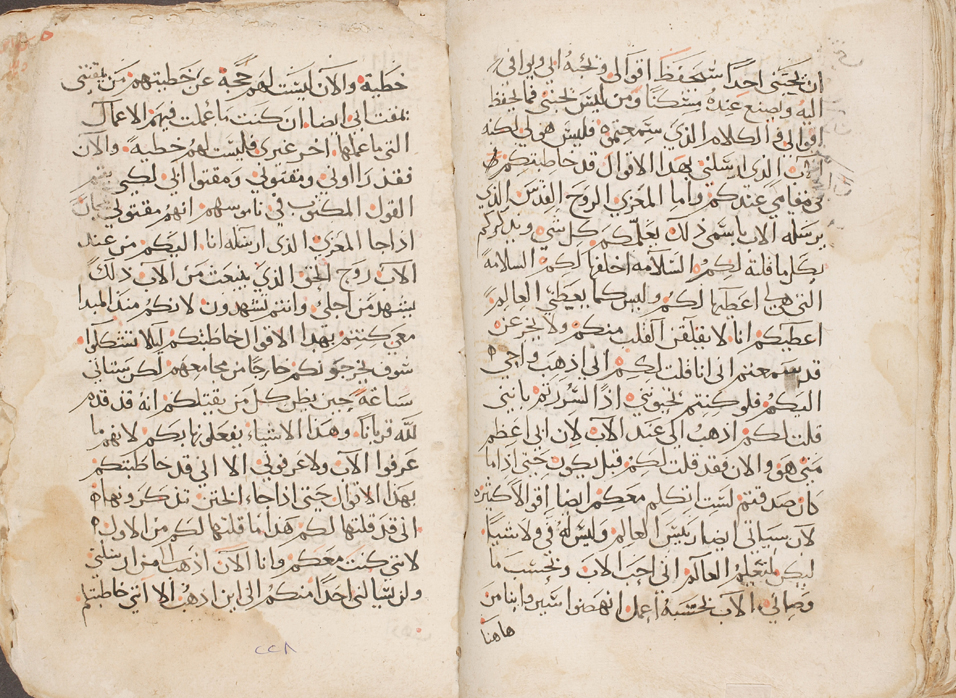 ان يحبني احدا ستحفظ اقوالي ويحبه ابي ويوافي
اليه ويصنع عنده مسكنًا ومن ليس يحبني فما يحفظ
اقوالي والكلام الذي سمعتموه فليس هو لي لكنه
الذي ارسلني بهذا الاقوال قد خاطبتكم
في مقامي عندكم واما المعزي الروح القدس الذي
يرسله الاب باسمي ذلك يعلمكم كل شي ويذكركم
بكلما قلتة لكم السلامه اخلفها لكم السلامة
التي هي اعطيها لكم وليس كما يعطي العالم
اعطيكم انا لا يقلقن القلب منكم ولا يجزعن
قد سمعتم اني انا قلت لكم اني اذهب واجي
اليكم فلو كنتم تحبوني اذًا لسررتم بانني
قلت لكم اذهب الى عند الاب لان ابي اعظم
مني هو والان فقد قلت لكم قبل يكون حتى اذا ما
كان صدقتم لست اتكلم معكم ايضا اقوالا كثيره
لان سياتي ايضا رييس العالم وليس له في ولا شيا
ليكن ليعلم العالم اني احب الاب وبحسب ما
وصاني الاب بحسبه اعمل انهضوا بنا من
هاهنا
خطية والان ليست لهم حجة عن خطيتهم من يمقتني
يمقت ابي ايضا ان كنت ما عملت فيهم الاعمال
التي ما عملها اخر غيري فليست لهم خطية والان
فقد راوني ومقتوني ومقتوا ابي لكي يتم
القول المكتوب في ناموسهم انهم مقتوني مجان
اذا جا المعزي الذي ارسله انا اليكم من عند
الاب روح الحق الذي ينبعث من الاب ذلك
يشهد من اجلي وانتم تشهدون لانكم منذ المبدا
معي كنتم بهذا الاقوال خاطبتكم ليلا تشكوا
سوف يخرجونكم خارجًا من مجامعهم لكن ستاتي
ساعة حين يظن كل من يقتلكم انه قد قدم
لله قربانًا وهذا الاشياء يفعلونها بكم لانهم ما
عرفوا الاب ولا عرفوني الا اني قد خاطبتكم
بهذا الاقوال حتى اذا جاء الحين تذكرونها
اني قد قلتها لكم هذا ما قلتها لكم من الاول
لانني كنت معكم وانا الان اذهب الى من ارسلني
ولن يسالني احدًا منكم الى اين اذهب الا انني خاطبتكم
٢٢٨